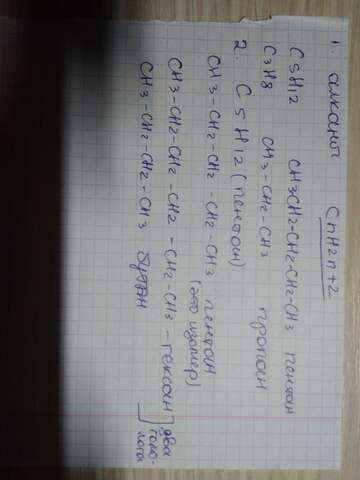 1. алканы CnH2n+2
C5H12 CH3CH2-CH2-CH2-CH3 пентан
C3H8 CH3-CH2-CH3 пропан
2. C5H12 (пентан)
CH3-CH2-CH2-CH2-CH3 пентан
(это изомер)
CH3-CH2-CH2-CH2-CH2-CH3-гексан
CH3-CH2-CH2-CH3 бутан
два
гомо-
лога